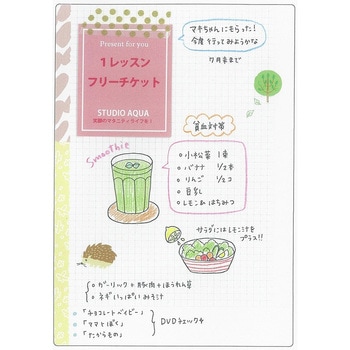 Present for you
1レッスン
フリーチケット
STUDIO AQUA
笑顔のマタニティライフを!
マチちゃんにもらった!
今度行ってみようかな
7月末まで
貧血対策
Smoothie
小松菜 1束
バナナ 1/2本
りんご 1/2コ
豆乳
レモン&はちみつ
サラダにはレモン汁を
プラス!!
ガーリック+豚肉+ほうれん草
ネギいっぱいみそ汁
「チョコレートベイビー」
「ママとぼく」
「たからもの」
DVDチェック中